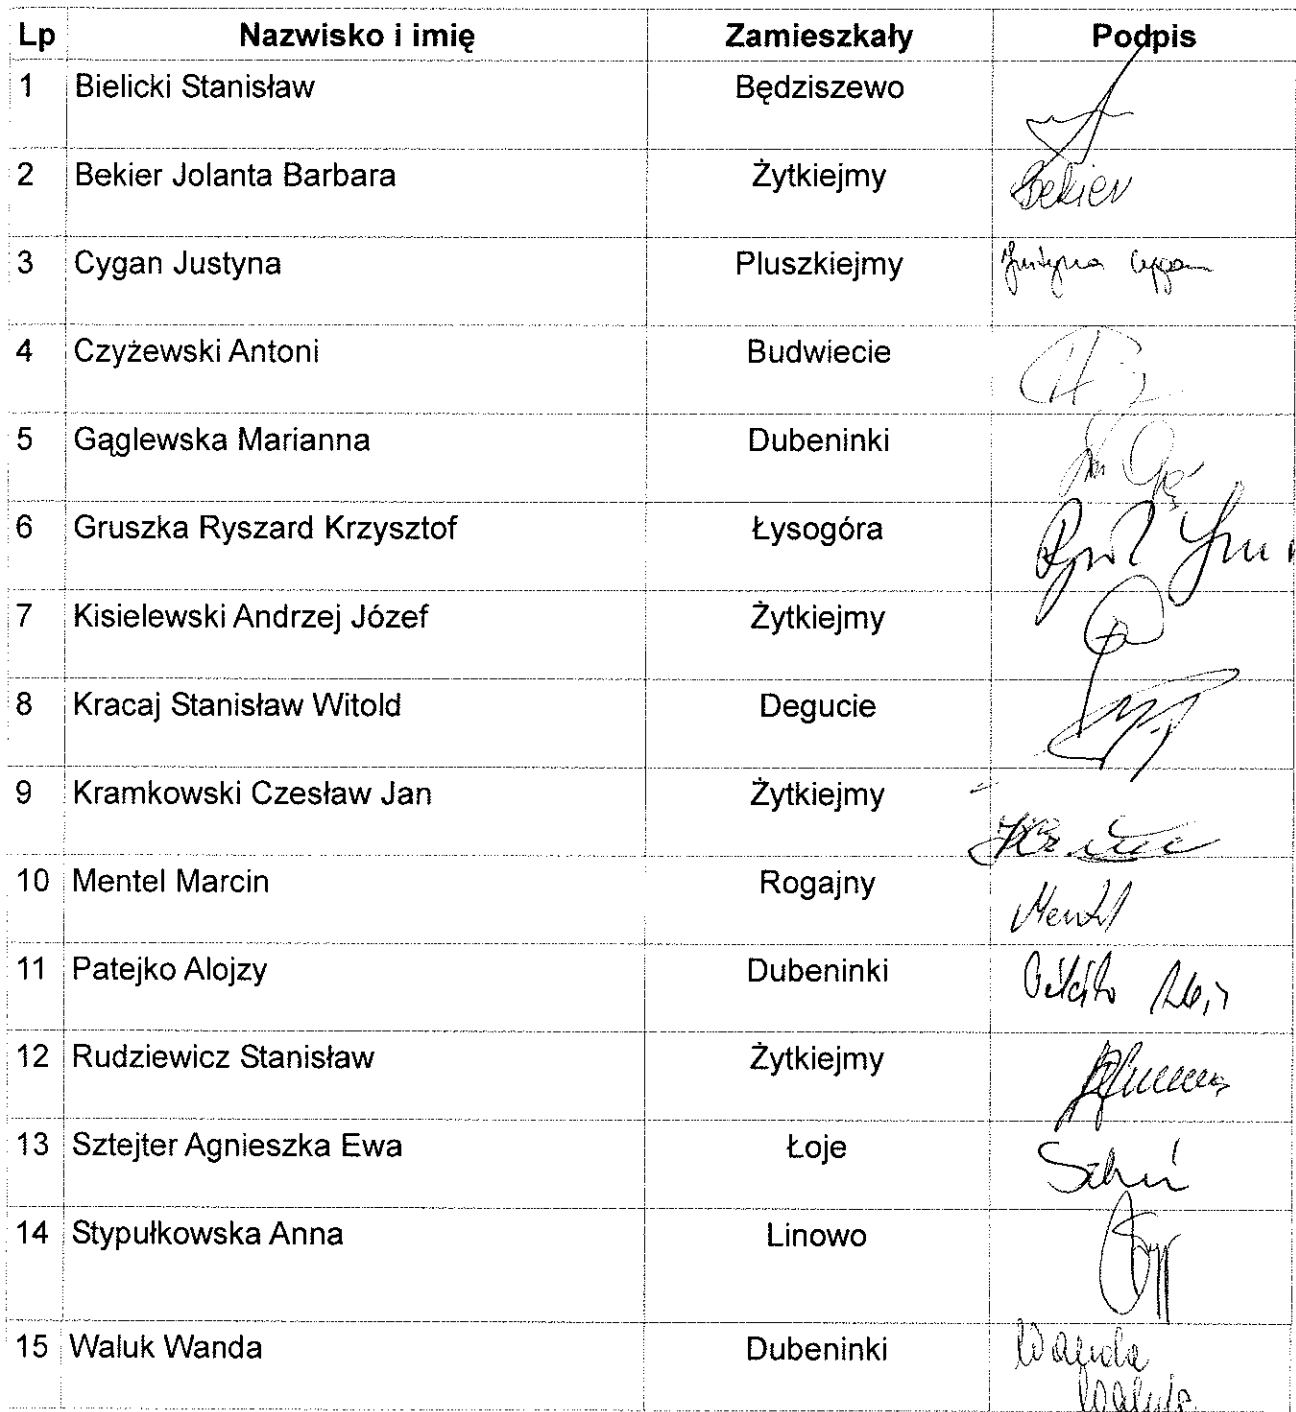 Lp Nazwisko i imię Zamieszkały Podpis
1 Bielicki Stanisław Będziszewo
2 Bekier Jolanta Barbara Żytkiejmy Bekier
3 Cygan Justyna Pluszkiejmy Justyna Cygan
4 Czyżewski Antoni Budwiecie
5 Gąglewska Marianna Dubeninki
6 Gruszka Ryszard Krzysztof Łysogóra
7 Kisielewski Andrzej Józef Żytkiejmy
8 Kracaj Stanisław Witold Degucie
9 Kramkowski Czesław Jan Żytkiejmy
10 Mentel Marcin Rogajny Mentel
11 Patejko Alojzy Dubeninki
12 Rudziewicz Stanisław Żytkiejmy
13 Sztejter Agnieszka Ewa Łoje
14 Stypułkowska Anna Linowo
15 Waluk Wanda Dubeninki Wanda
Waluk